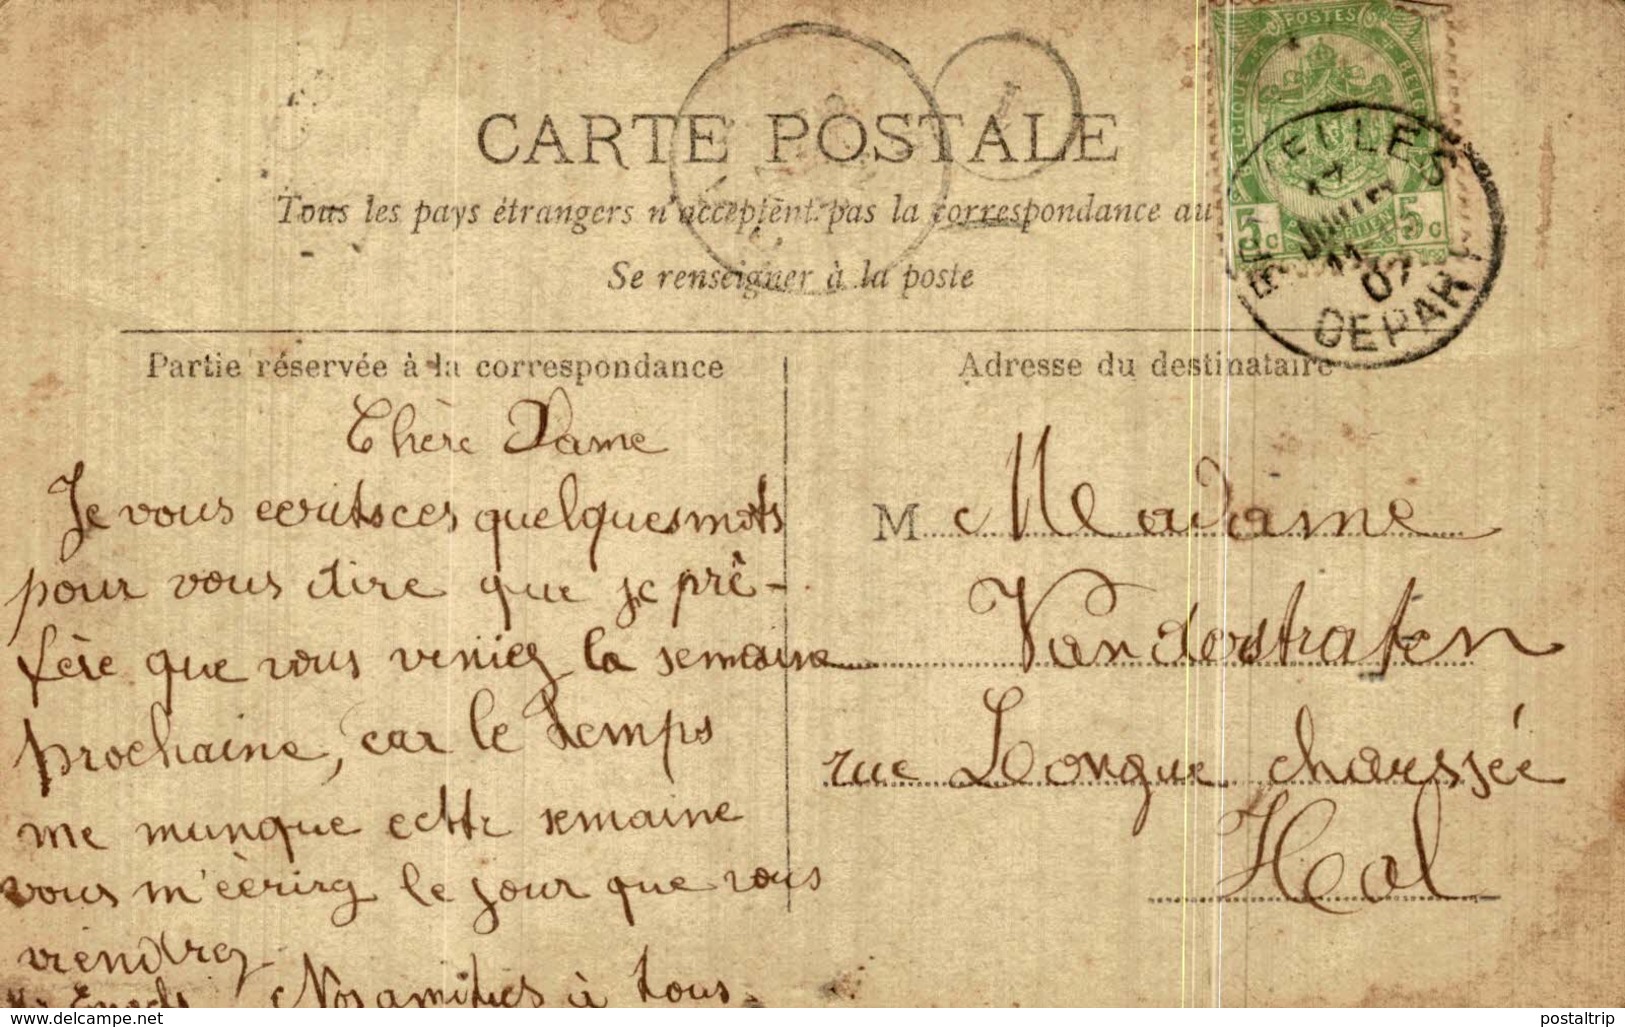 CARTE POSTALE
Tous les pays étrangers n'acceptent pas la correspondance au
Se renseigner à la poste
POSTES
BELGIQUE
5 c
5 c
ELLES
17
JUIL
11
07
DEPART
Partie réservée à la correspondance
Chère Dame
Je vous ecrits ces quelques mots
pour vous dire que je pré-
fère que vous veniez la semaine
prochaine, car le temps
me manque cette semaine
vous m'écrirez le jour que vous
viendrez
Nos amitiés à tous.
Adresse du destinataire
M Madame
Vanderstraten
rue Longue chaussée
Hal
www.delcampe.net
postaltrip